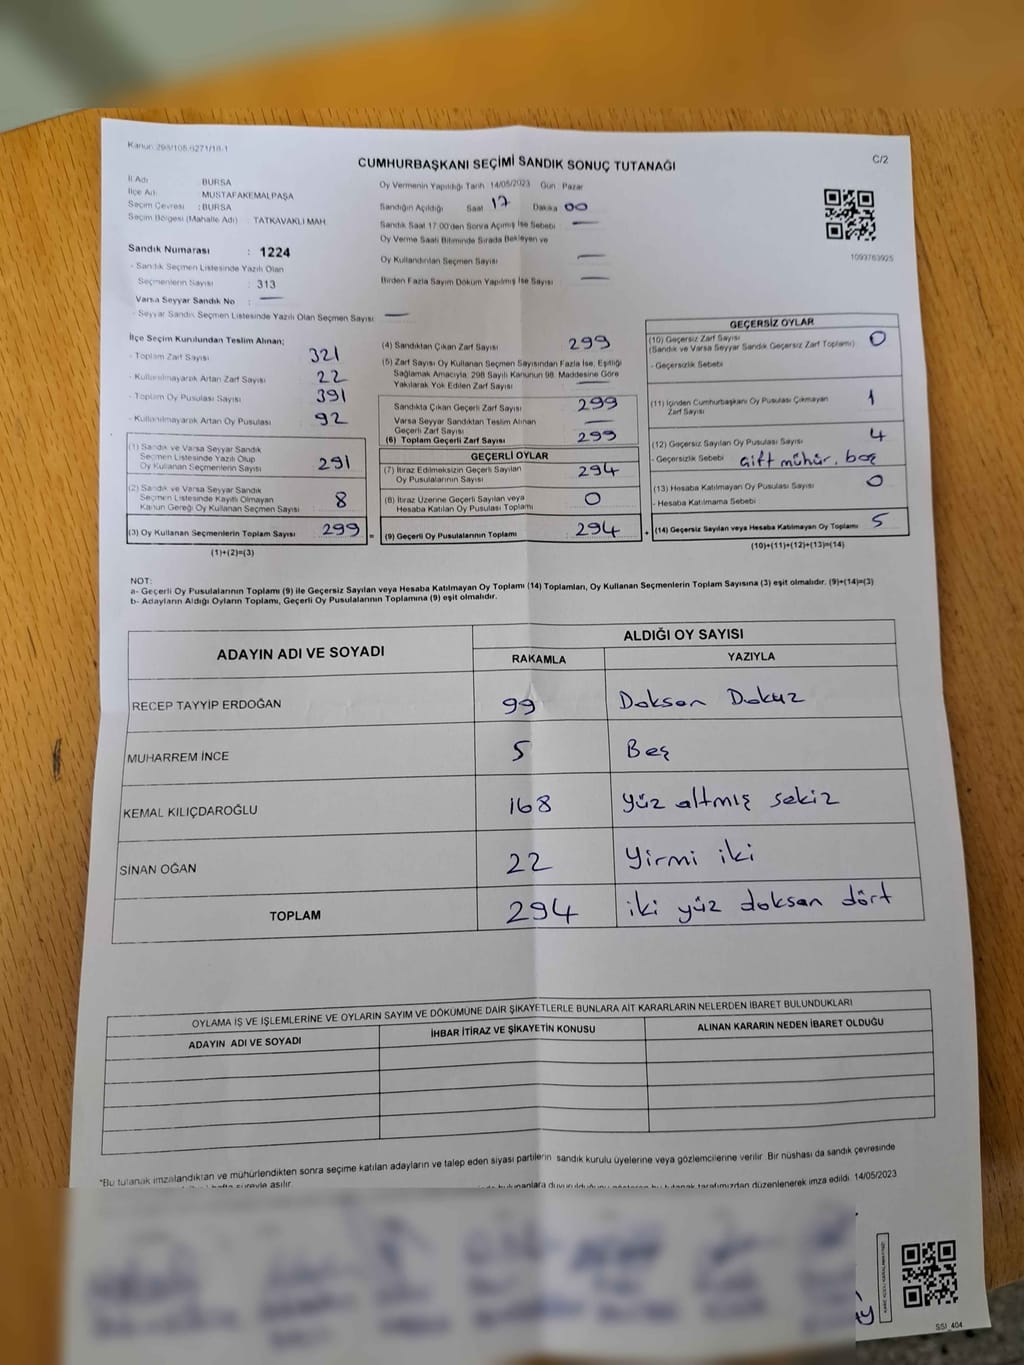 Kanun 298/105-6271/18-1
CUMHURBAŞKANI SEÇİMİ SANDIK SONUÇ TUTANAĞI
C/2
İl Adı : BURSA
İlçe Adı : MUSTAFAKEMALPAŞA
Seçim Çevresi : BURSA
Seçim Bölgesi (Mahalle Adı) : TATKAVAKLI MAH.
Sandık Numarası : 1224
- Sandık Seçmen Listesinde Yazılı Olan
Seçmenlerin Sayısı : 313
Varsa Seyyar Sandık No : —
- Seyyar Sandık Seçmen Listesinde Yazılı Olan Seçmen Sayısı: —
Oy Vermenin Yapıldığı Tarih 14/05/2023 Gün Pazar
Sandığın Açıldığı Saat 17 Dakika 00
Sandık Saat 17.00'den Sonra Açılmış İse Sebebi —
Oy Verme Saati Bitiminde Sırada Bekleyen ve
Oy Kullandırılan Seçmen Sayısı —
Birden Fazla Sayım Döküm Yapılmış İse Sayısı —
1093763925
İlçe Seçim Kurulundan Teslim Alınan;
- Toplam Zarf Sayısı 321
- Kullanılmayarak Artan Zarf Sayısı 22
- Toplam Oy Pusulası Sayısı 391
- Kullanılmayarak Artan Oy Pusulası 92
(1) Sandık ve Varsa Seyyar Sandık
Seçmen Listesinde Yazılı Olup
Oy Kullanan Seçmenlerin Sayısı 291
(2) Sandık ve Varsa Seyyar Sandık
Seçmen Listesinde Kayıtlı Olmayan
Kanun Gereği Oy Kullanan Seçmen Sayısı 8
(3) Oy Kullanan Seçmenlerin Toplam Sayısı 299 =
(1)+(2)=(3)
(4) Sandıktan Çıkan Zarf Sayısı 299
(5) Zarf Sayısı Oy Kullanan Seçmen Sayısından Fazla İse, Eşitliği
Sağlamak Amacıyla, 298 Sayılı Kanunun 98. Maddesine Göre
Yakılarak Yok Edilen Zarf Sayısı —
Sandıkta Çıkan Geçerli Zarf Sayısı 299
Varsa Seyyar Sandıktan Teslim Alınan
Geçerli Zarf Sayısı —
(6) Toplam Geçerli Zarf Sayısı 299
GEÇERLİ OYLAR
(7) İtiraz Edilmeksizin Geçerli Sayılan
Oy Pusulalarının Sayısı 294
(8) İtiraz Üzerine Geçerli Sayılan veya
Hesaba Katılan Oy Pusulası Toplamı 0
(9) Geçerli Oy Pusulalarının Toplamı 294 +
GEÇERSİZ OYLAR
(10) Geçersiz Zarf Sayısı 0
(Sandık ve Varsa Seyyar Sandık Geçersiz Zarf Toplamı)
- Geçersizlik Sebebi
(11) İçinden Cumhurbaşkanı Oy Pusulası Çıkmayan
Zarf Sayısı 1
(12) Geçersiz Sayılan Oy Pusulası Sayısı 4
- Geçersizlik Sebebi Çift mühür, boş
(13) Hesaba Katılmayan Oy Pusulası Sayısı 0
- Hesaba Katılmama Sebebi
(14) Geçersiz Sayılan veya Hesaba Katılmayan Oy Toplamı 5
(10)+(11)+(12)+(13)=(14)
NOT:
a- Geçerli Oy Pusulalarının Toplamı (9) ile Geçersiz Sayılan veya Hesaba Katılmayan Oy Toplamı (14) Toplamları, Oy Kullanan Seçmenlerin Toplam Sayısına (3) eşit olmalıdır. (9)+(14)=(3)
b- Adayların Aldığı Oyların Toplamı, Geçerli Oy Pusulalarının Toplamına (9) eşit olmalıdır.
ADAYIN ADI VE SOYADI
ALDIĞI OY SAYISI
RAKAMLA YAZIYLA
RECEP TAYYİP ERDOĞAN 99 Doksan Dokuz
MUHARREM İNCE 5 Beş
KEMAL KILIÇDAROĞLU 168 Yüz altmış sekiz
SİNAN OĞAN 22 Yirmi iki
TOPLAM 294 iki yüz doksan dört
OYLAMA İŞ VE İŞLEMLERİNE VE OYLARIN SAYIM VE DÖKÜMÜNE DAİR ŞİKAYETLERLE BUNLARA AİT KARARLARIN NELERDEN İBARET BULUNDUKLARI
ADAYIN ADI VE SOYADI İHBAR İTİRAZ VE ŞİKAYETİN KONUSU ALINAN KARARIN NEDEN İBARET OLDUĞU
*Bu tutanak imzalandıktan ve mühürlendikten sonra seçime katılan adayların ve talep eden siyasi partilerin sandık kurulu üyelerine veya gözlemcilerine verilir. Bir nüshası da sandık çevresinde
hafta süreyle asılır.
bu tutanak tarafımızdan düzenlenerek imza edildi. 14/05/2023
SSİ_404